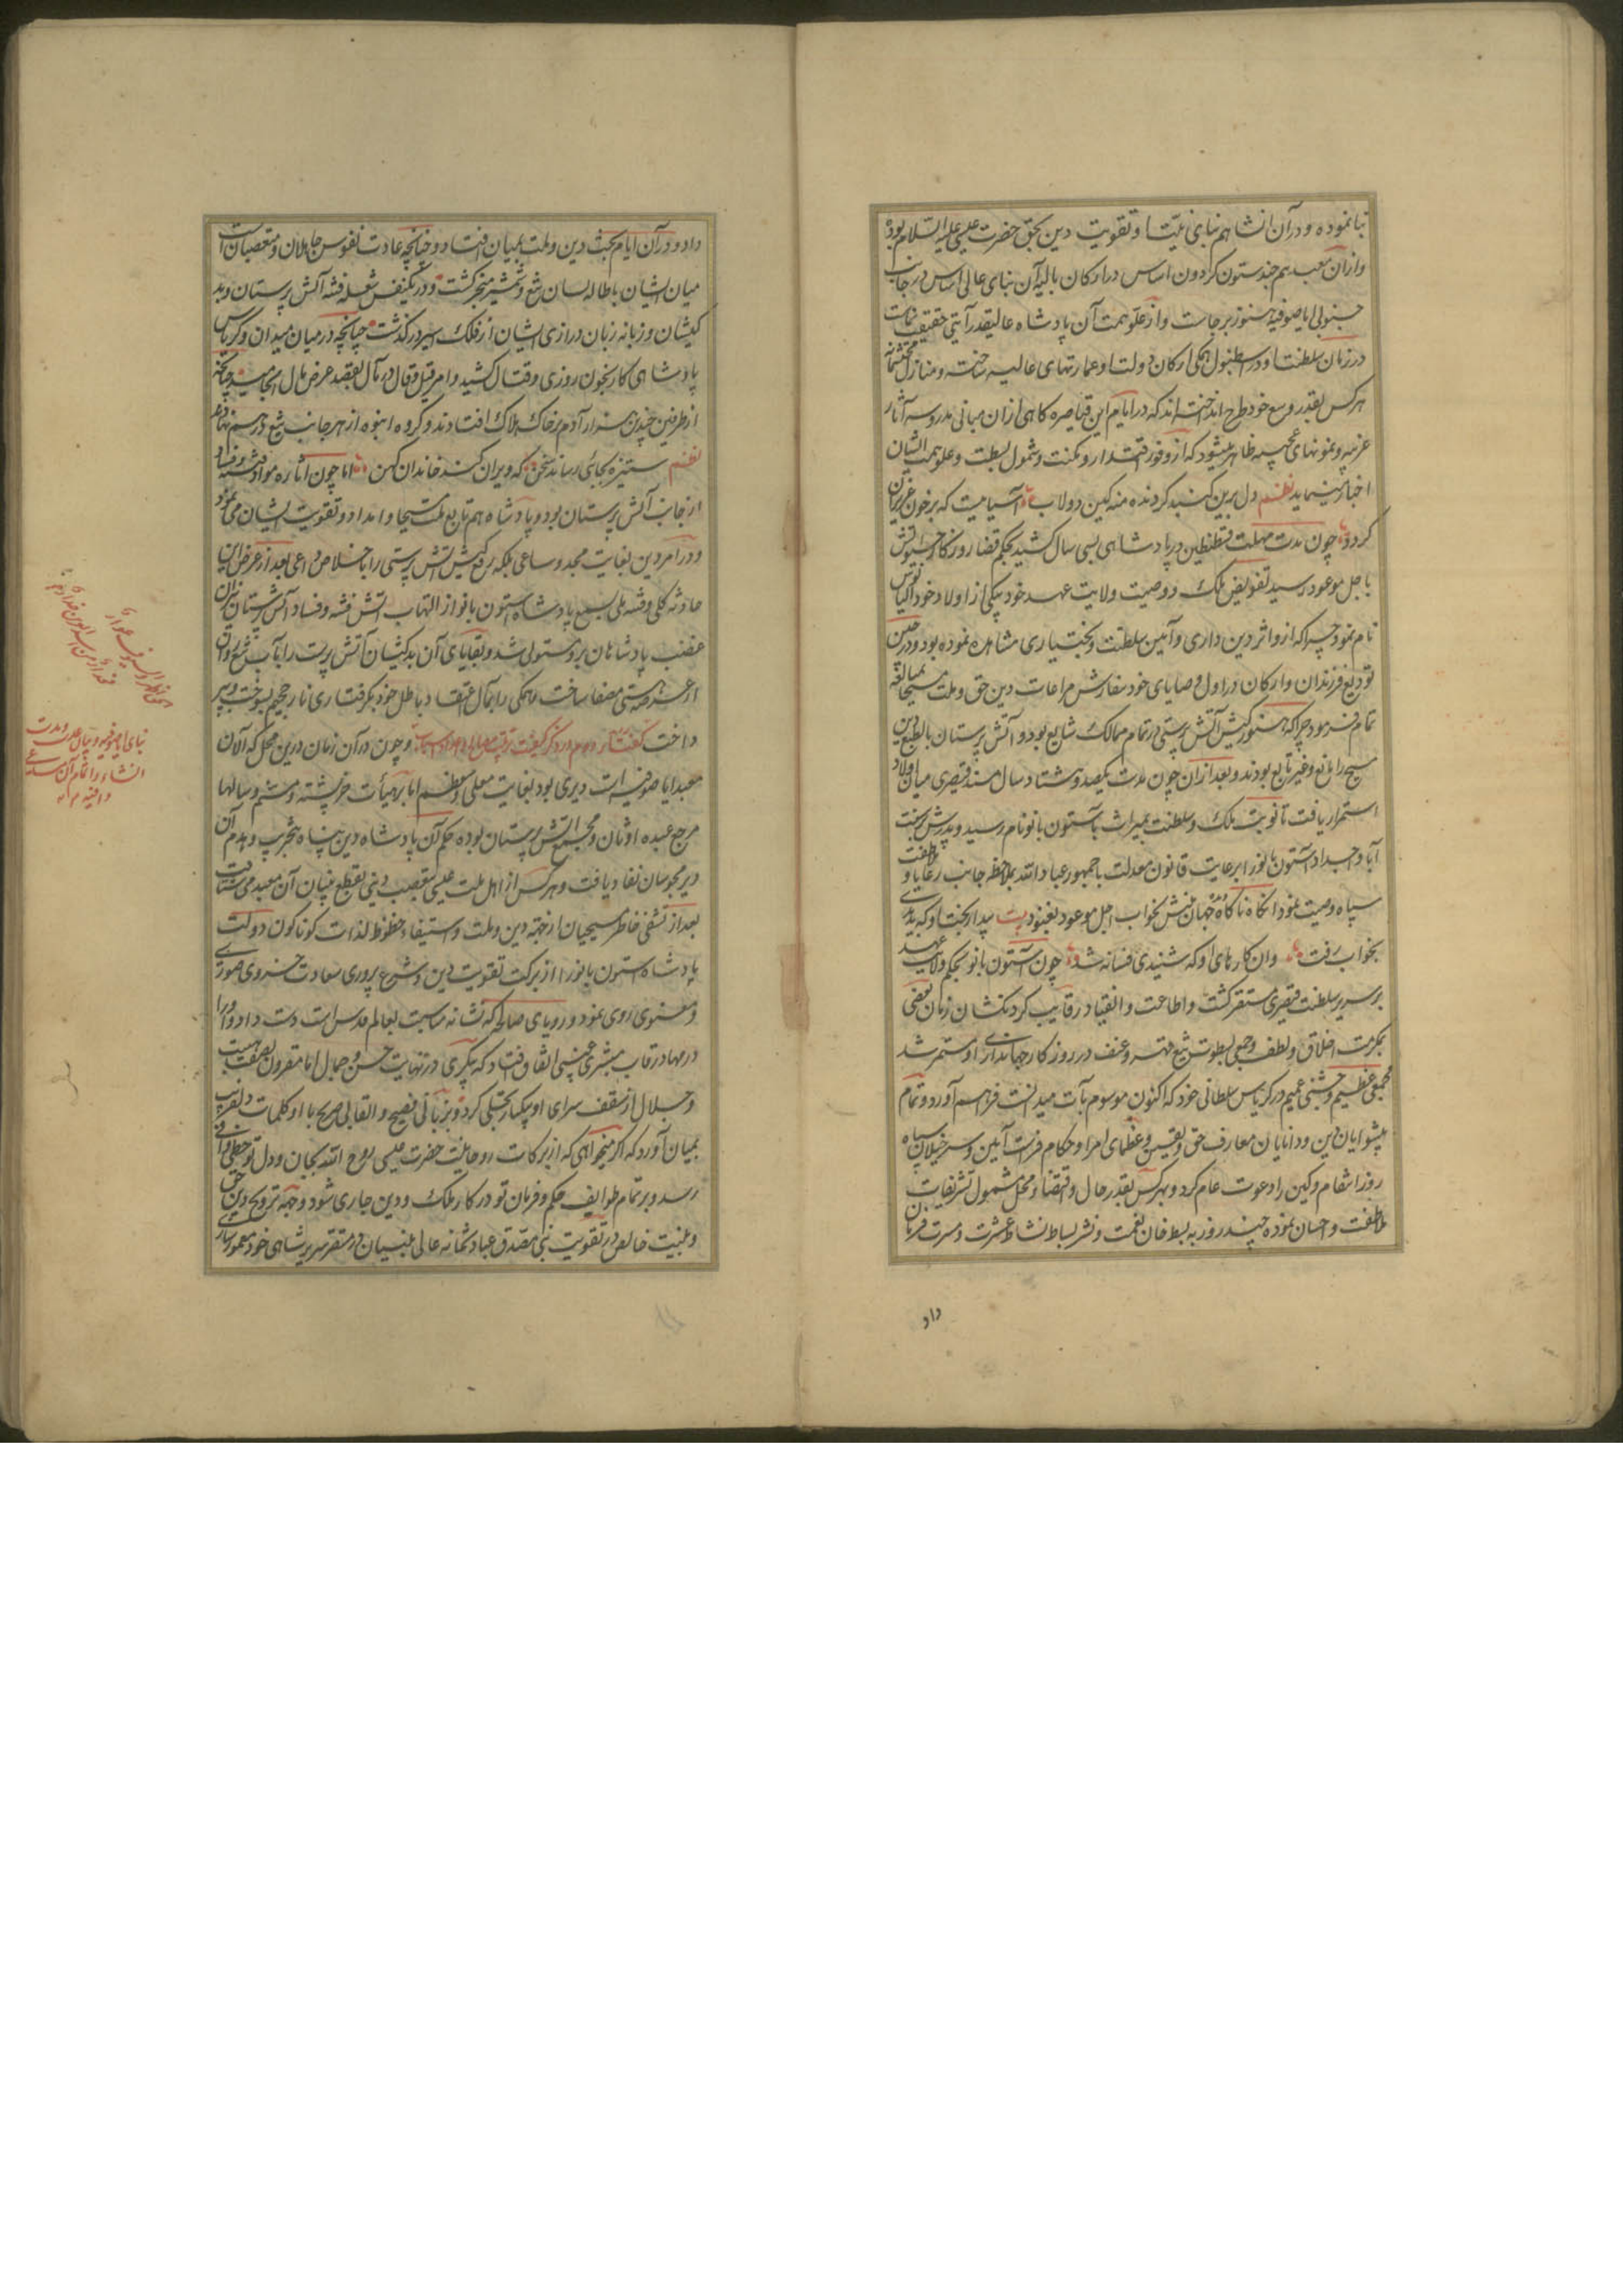 بنا نموده و در آن انشا هم بنای نیت او تقویت دین بحق حضرت عیسی علیه السلام بوده
و از آن معبد هم چند ستون گردون اساس در ارکان باقیه آن بنای عالی اساس در جانب
جنوبی ایاصوفیه هنوز برجاست و از علو همت آن پادشاه عالیقدر آیتی حقیقت نماست
در زمان سلطنت او در اسطنبول همگی ارکان دولت او عمارتهای عالیه ساخته و منازل محتشمانه
هر کس بقدر وسع خود طرح انداخته اند که در ایام این قیاصره گاهی از آن مبانی مدروسه آثار
غریبه و نمونهای عجیبه ظاهر میشود که از وفور اقتدار و مکنت و شمول بسطت و علو همت ایشان
اخبار مینماید نظم دل برین گنبد گردنده منه کین دولاب آسیابیست که بر خون عزیزان
گردد چون مدت مهلت قسطنطین در پادشاهی بسی سال کشید بحکم قضا روزگار
باجل موعود رسید تفویض ملک و وصیت ولایت عهد خود بیکی از اولاد خود
نام نمود چرا که ازو اثر دین داری و آیین سلطنت و بختیاری مشاهده نموده بود و در حین
تودیع فرزندان و ارکان در اول وصایای خود سفارش مراعات دین حق و ملت مسیحا بمبالغه
تمام فرمود چرا که هنوز کیش آتش پرستی در تمام ممالک شایع بود و آتش پرستان بالطبع دین
مسیح را مانع و غیر تابع بودند و بعد از آن چون مدت یکصد و هشتاد سال مسند قیصری میان اولاد او
استمرار یافت تا نوبت ملک و سلطنت بمیراث باستون بانو نام رسید و پدرش بر سنت
آبا و اجداد استون بانو را برعایت قانون معدلت با جمهور عباد الله بملاحظه جانب رعایا و
سپاه وصیت نمود آنگاه ناگاه بخواب اجل موعود بغنود بیت بیدار بخت او که بدی
بخواب رفت وان کارهای او که شنیدی فسانه شد چون استون بانو بحکم ولایت عهد
بر سریر سلطنت قیصری مستقر گشت و اطاعت و انقیاد رقاب گردنکشان زمان بعضی
بمکرمت اخلاق و لطف و جمعی بسطوت تیغ قهر و عنف در روزگار جهانداری او مستمر شد
مجمعی عظیم و جشنی عمیم در کریاس سلطانی خود که اکنون موسوم بآت میدانست فراهم آورد و تمام
پیشوایان دین و دانایان معارف حق و یقین و عظمای امرا و حکام فراست آیین و سرخیلان سپاه
روز انتقام و کین را دعوت عام کرد و بهر کس بقدر حال و اقتضاء محل مشمول تشریفات
عاطفت و احسان نموده چند روز به بسط خان نعمت و نشر بساط نشاط عشرت و مسرت فرمان
داد
داد و در آن ایام بحث دین و ملت بمیان افتاد و چنانچه عادت نفوس جاهلان و متعصبان است
میان ایشان باطاله لسان تیغ و شمشیر منجر گشت و در یکنفس شعله فتنه آتش پرستان و بد
کیشان و زبانه زبان درازی ایشان از فلک اثیر در گذشت چنانچه در میان میدان و کریاس
پادشاهی کار بخون روزی و قتال کشید و امر قیل و قال در مآل بقصد عرض مال انجامید چنانچه
از طرفین چندین هزار آدم بر خاک هلاک افتادند و گروه انبوه از هر جانب تیغ در هم نهادند
نظم ستیزه بجائی رساند سخن که ویران کند خاندان کهن اما چون اثاره مواد فتنه و فساد
از جانب آتش پرستان بود و پادشاه هم تابع ملت مسیحا و امداد و تقویت ایشان می نمود
و در امر دین بغایت مجد و ساعی بلکه رفع کیش آتش پرستی را باخلاص داعی بعد از عرض این
حادثه کلی و فتنه ملی بسمع پادشاه استون بانو از التهاب آتش فتنه و فساد آتش پرستان نیران
غضب پادشاهان برو مستولی شد و بقایای آن بدکیشان آتش پرست را بآب تیغ
از عرصه هستی مصفا ساخت و همگی را بمآل اعتقاد باطل خود بگرفتاری نار جحیم بسوخت و بپر
داخت گفتار دوم در ذکر کیفیت و چون در آن زمان درین محل که الآن
معبد ایاصوفیه است دیری بود بغایت معلی و معظم اما بر هیأت خرپشته و مسنم و سالها
مرجع عبده اوثان و مجمع آتش پرستان بوده حکم آن پادشاه دین پناه بتخریب و هدم آن
دیر مجوسان نفاد یافت و هر کس از اهل ملت عیسی بتعصب دینی بقطع بنیان آن معبد می شتافت
بعد از تشفی خاطر مسیحیان از جهة دین و ملت و استیفاء حظوظ لذات گوناگون دولت
پادشاه استون بانو را از برکت تقویت دین و شرع پروری سعادت خسروی صوری
و معنوی روی نمود و رویای صالحه که نشانه مناسبت بعالم قدس است دست داد و او را
در مهاد رقاب مبشری غیبی اتفاق افتاد که پیکری در نهایت حسن و جمال اما مقرون بصفت هیبت
و جلال از سقف سرای او بیکبار تجلی کرد و بزبانی فصیح و القابی صریح با او کلمات دلفریب
بمیان آورد که اگر میخواهی که از برکات روحانیت حضرت عیسی روح الله بجان و دل تو حظی وافی
رسد و بر تمام طوایف حکم و فرمان تو در کار ملک و دین جاری شود و جهة ترویج دین حق
و بنیت خالص در تقویت نبی مصدق عبادتخانه عالی بنیان در مستقر سریر شاهی خود معمور سازی
بنای ایاصوفیه و بیان علت و مدت
انشاء و اتمام آن